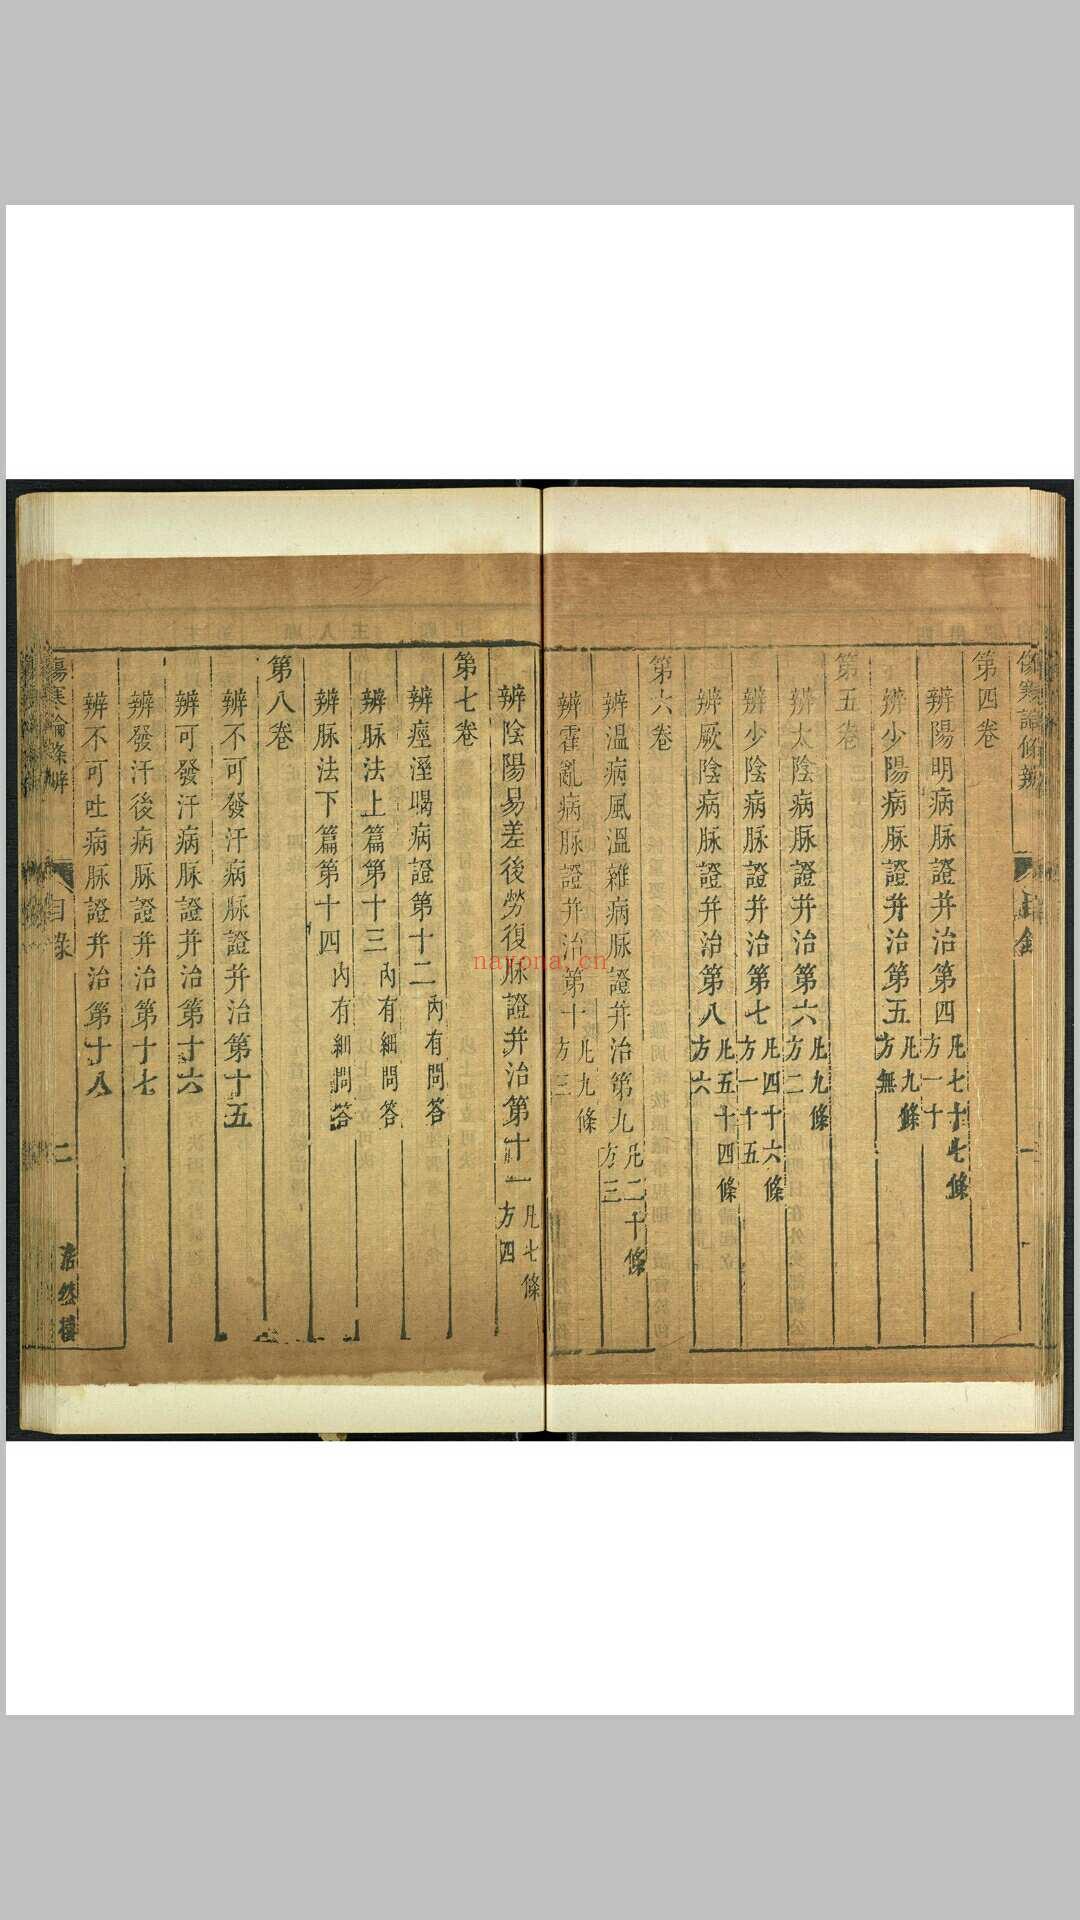 傷寒論條辨
目錄
一
第四卷
辨陽明病脉證并治第四 凡七十七條 方一十
辨少陽病脉證并治第五 凡九條 方無
第五卷
辨太陰病脉證并治第六 凡九條 方二
辨少陰病脉證并治第七 凡四十六條 方一十五
辨厥陰病脉證并治第八 凡五十四條 方六
第六卷
辨溫病風溫雜病脉證并治第九 凡二十條 方三
辨霍亂病脉證并治第十 凡九條 方三
辨陰陽易差後勞復脉證并治第十一 凡七條 方四
第七卷
辨痙溼暍病證第十二 內有問答
辨脉法上篇第十三 內有細問答
辨脉法下篇第十四 內有細問答
第八卷
辨不可發汗病脉證并治第十五
辨可發汗病脉證并治第十六
辨發汗後病脉證并治第十七
辨不可吐病脉證并治第十八
傷寒論條辨
目錄
二
浩然樓
nayona.cn